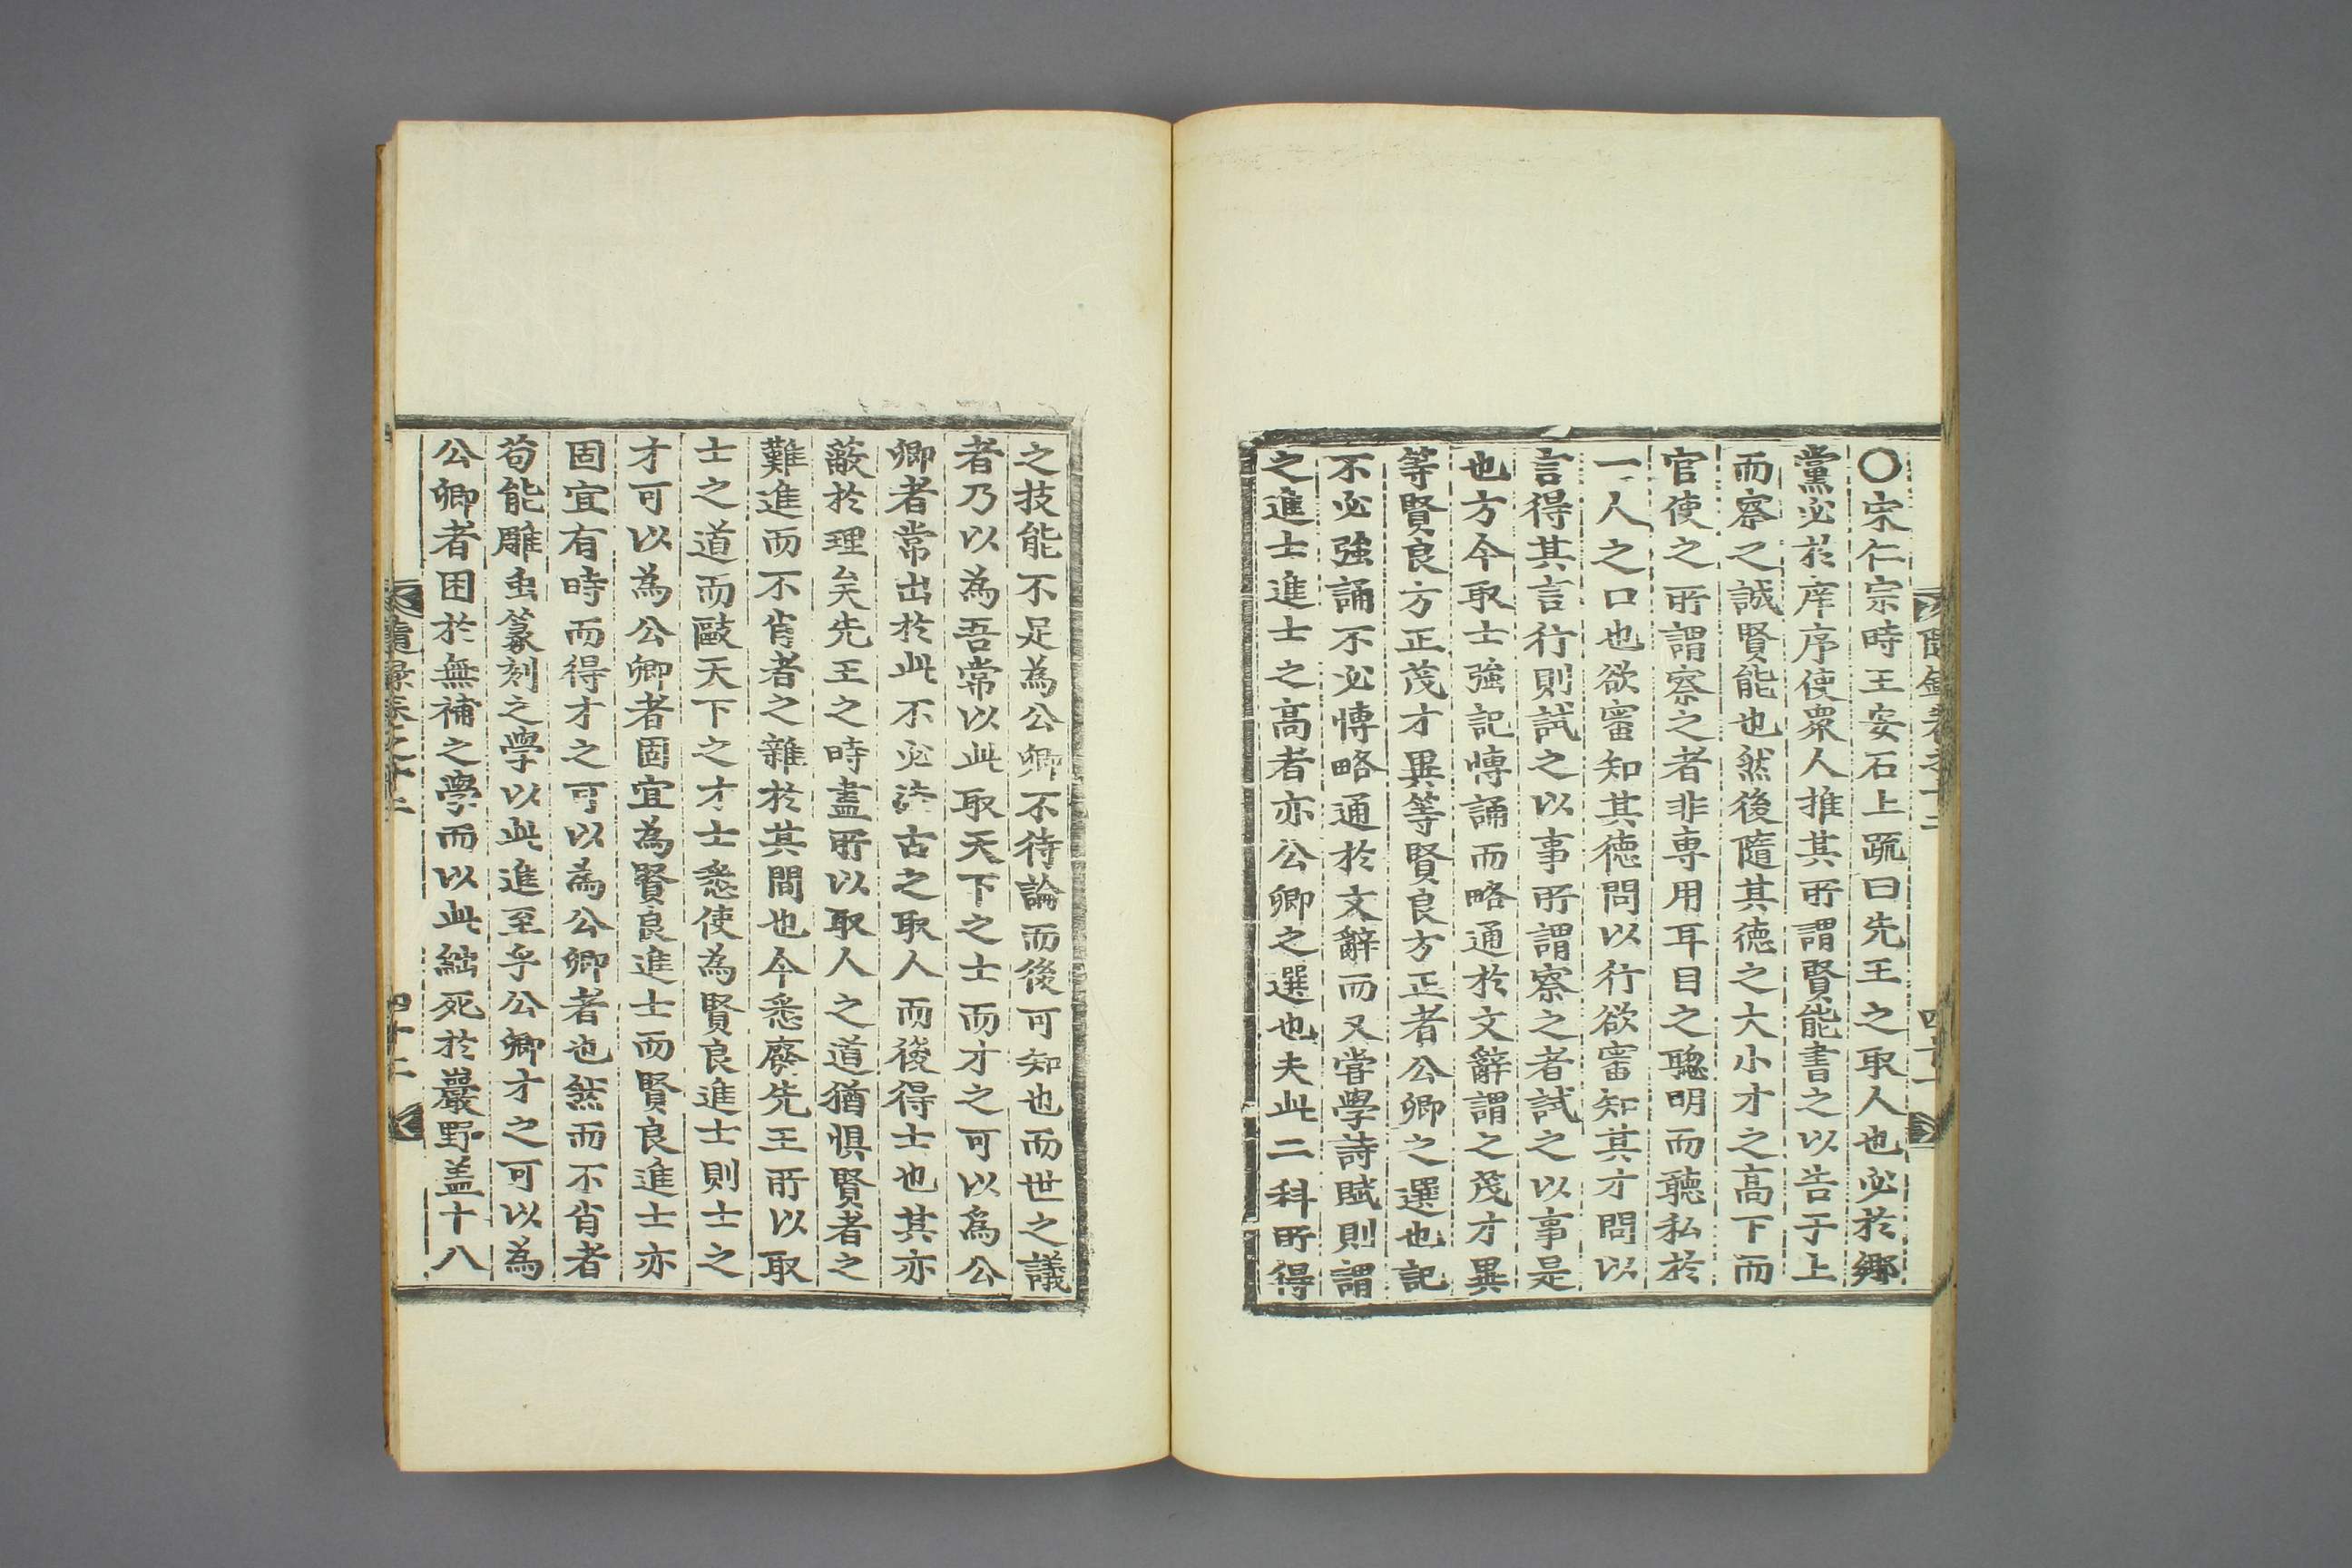 〇宋仁宗時王安石上䟽曰先王之取人也必於鄉
黨必於庠序使衆人推其所謂賢能書之以告于上
而察之誠賢能也然後隨其德之大小才之高下而
官使之所謂察之者非專用耳目之聰明而聽私於
一人之口也欲審知其德問以行欲審知其才問以
言得其言行則試之以事所謂察之者試之以事是
也方今取士強記博誦而略通於文辭謂之茂才異
等賢良方正茂才異等賢良方正者公卿之選也記
不必強誦不必博略通於文辭而又嘗學詩賦則謂
之進士進士之高者亦公卿之選也夫此二科所得
之技能不足為公卿不待論而後可知也而世之議
者乃以為吾常以此取天下之士而才之可以為公
卿者常出於此不必法古之取人而後得士也其亦
蔽於理矣先王之時盡所以取人之道猶惧賢者之
難進而不肖者之雜於其間也今悉廢先王所以取
士之道而敺天下之才士悉使為賢良進士則士之
才可以為公卿者固宜為賢良進士而賢良進士亦
固宜有時而得才之可以為公卿者也然而不肖者
苟能雕虫篆刻之學以此進至乎公卿才之可以為
公卿者困於無補之學而以此絀死於巖野盖十八
隨錄卷之十二
四十二